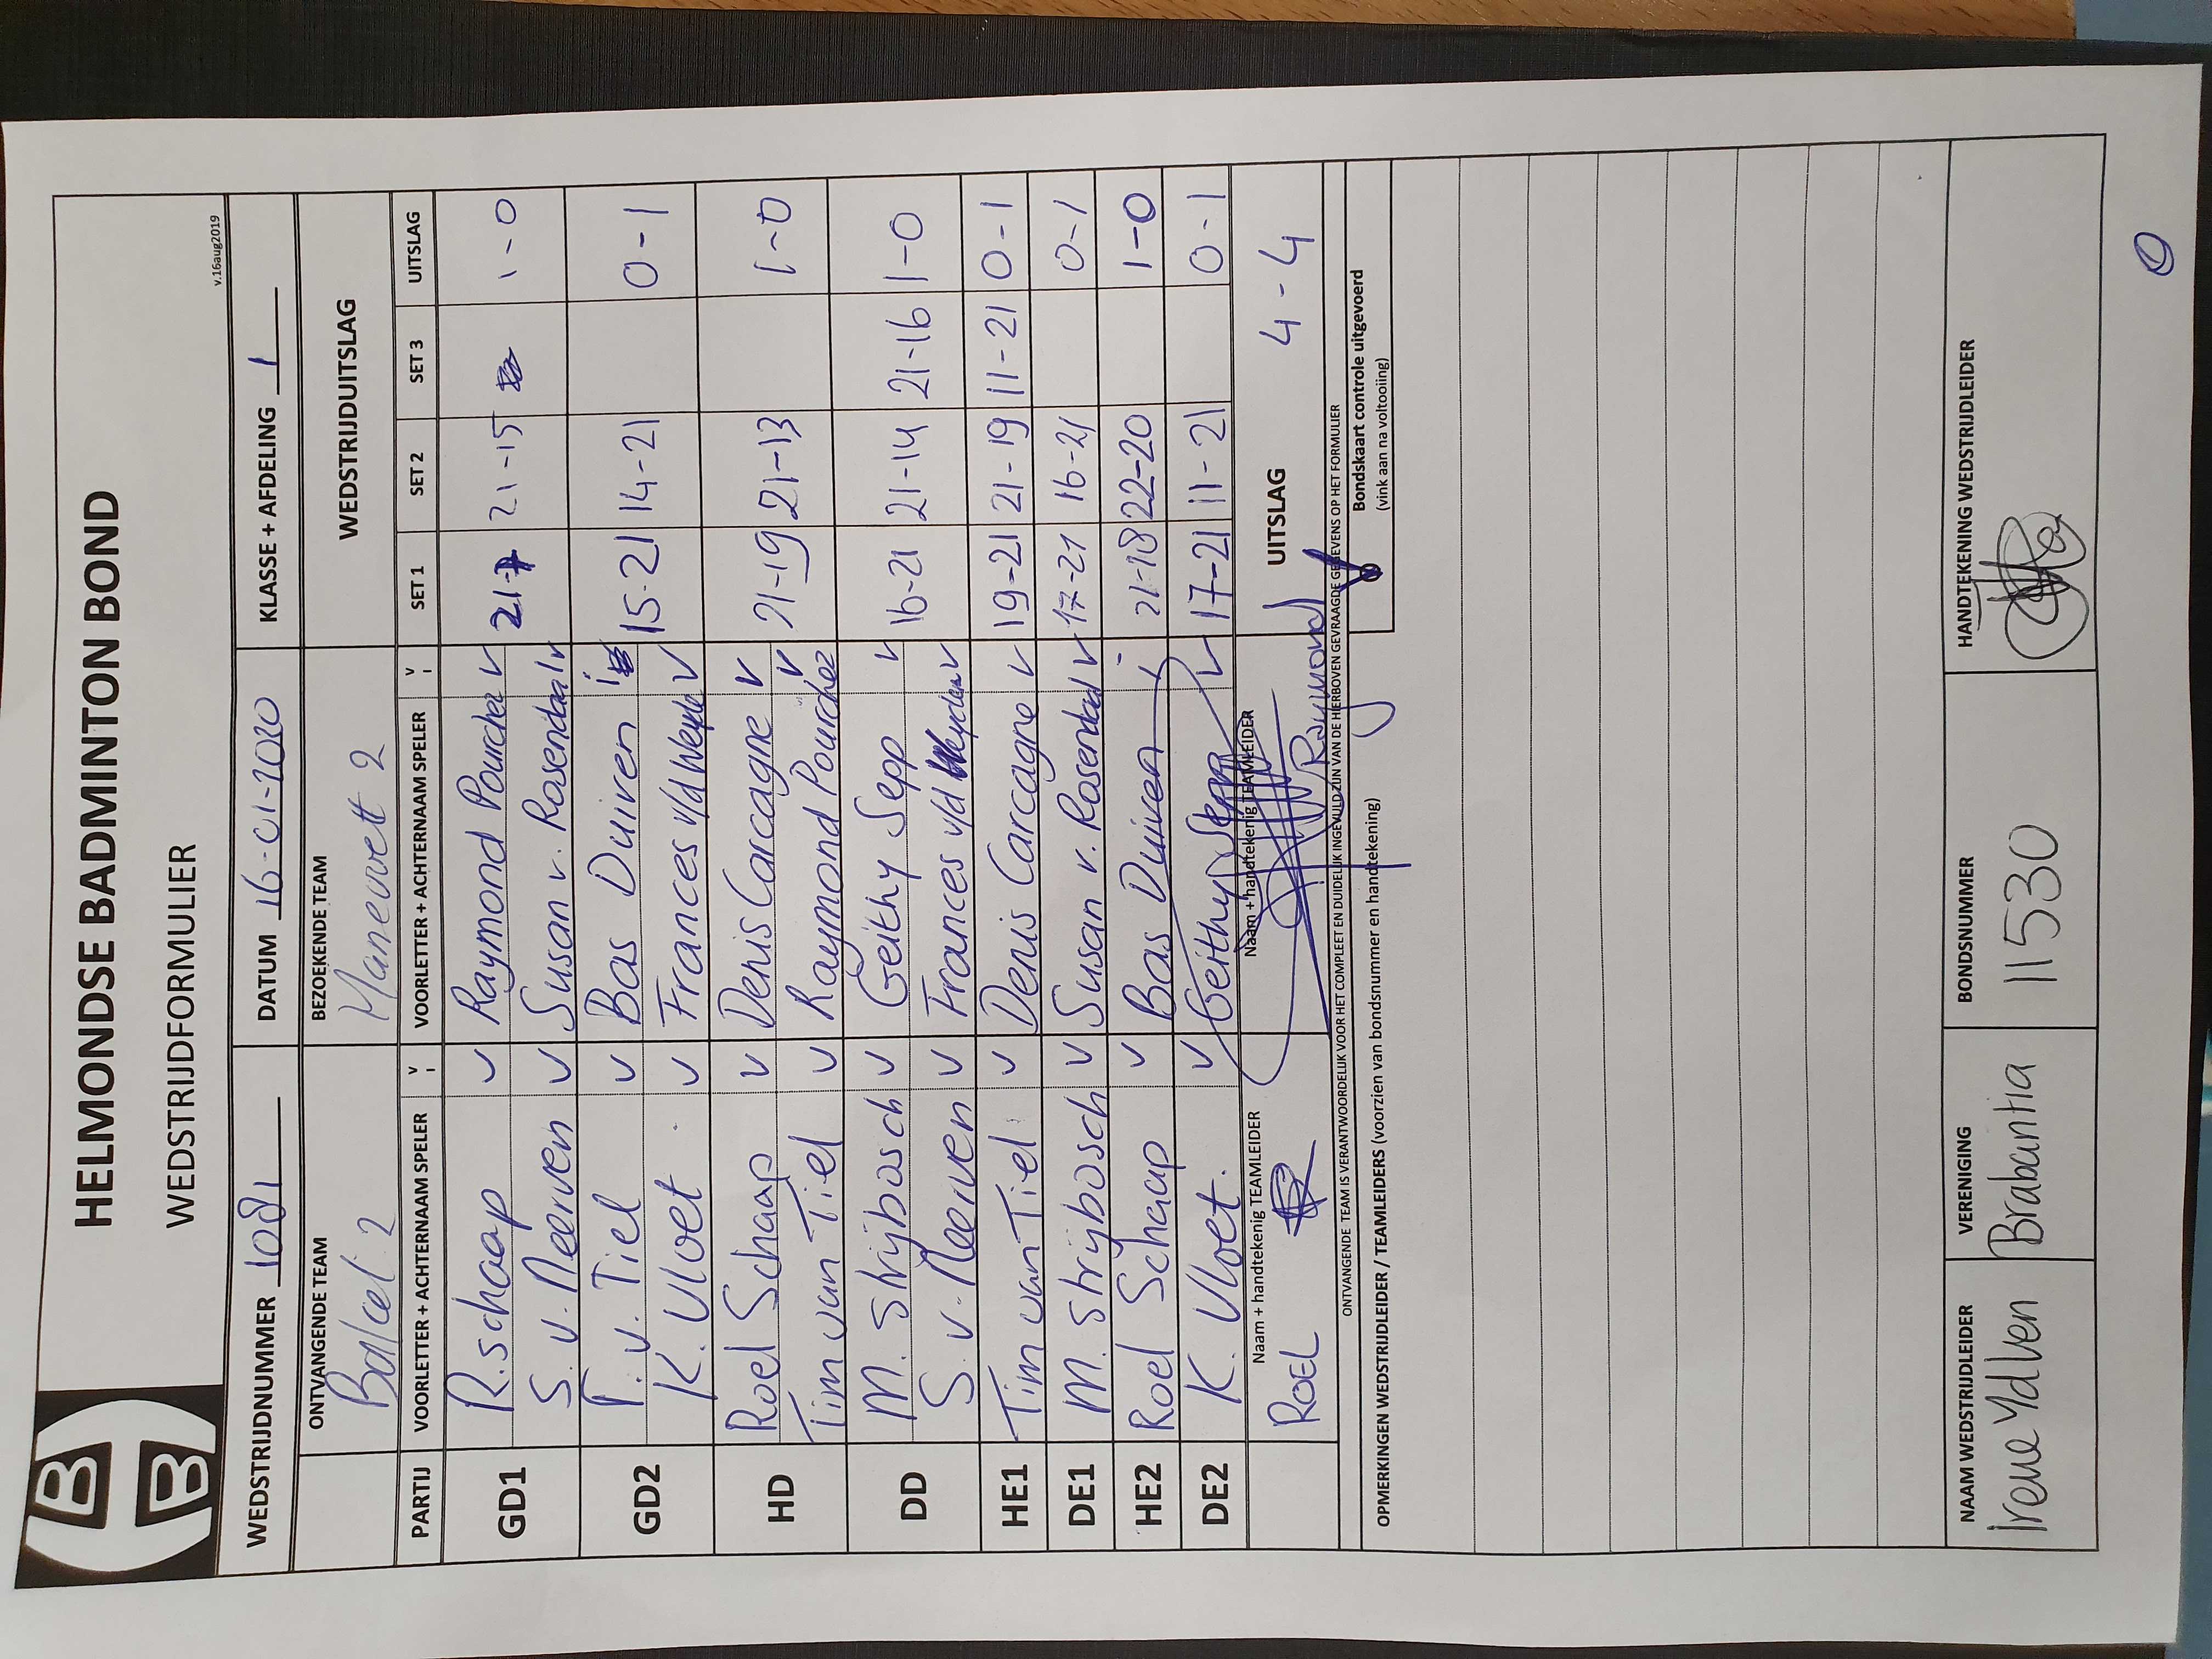 HBB
HELMONDSE BADMINTON BOND
WEDSTRIJDFORMULIER
v.16aug2019
WEDSTRIJDNUMMER 1081 DATUM 16-01-2020 KLASSE + AFDELING 1
ONTVANGENDE TEAM BEZOEKENDE TEAM WEDSTRIJDUITSLAG
Balcel 2 Manewett 2
PARTIJ VOORLETTER + ACHTERNAAM SPELER V I VOORLETTER + ACHTERNAAM SPELER V I SET 1 SET 2 SET 3 UITSLAG
GD1 R. schaap v Raymond Pourchez v 21-7 21-15 1-0
S. v. Neerven v Susan v. Rosendaal v
GD2 T. v. Tiel v Bas Duiven i 15-21 14-21 0-1
K. Vloet v Frances v/d Weyde v
HD Roel Schaap v Denis Carcagne v 21-19 21-13 1-0
Tim van Tiel v Raymond Pourchez v
DD M. Strijbosch v Geithy Sepp v 16-21 21-14 21-16 1-0
S. v. Neerven v Frances v/d Weyden v
HE1 Tim van Tiel v Denis Carcagne v 19-21 21-19 11-21 0-1
DE1 M. Strijbosch v Susan v. Rosendaal v 17-21 16-21 0-1
HE2 Roel Schaap v Bas Duiven i 21-18 22-20 1-0
DE2 K. Vloet. v Geithy Sepp v 17-21 11-21 0-1
Naam + handtekenig TEAMLEIDER Naam + handtekenig TEAMLEIDER UITSLAG 4-4
ROEL Raymond
ONTVANGENDE TEAM IS VERANTWOORDELIJK VOOR HET COMPLEET EN DUIDELIJK INGEVULD ZIJN VAN DE HIERBOVEN GEVRAAGDE GEGEVENS OP HET FORMULIER
OPMERKINGEN WEDSTRIJDLEIDER / TEAMLEIDERS (voorzien van bondsnummer en handtekening)
Bondskaart controle uitgevoerd
(vink aan na voltooiing)
NAAM WEDSTRIJDLEIDER VERENIGING BONDSNUMMER HANDTEKENING WEDSTRIJDLEIDER
Irene Ydlen Brabantia 11530